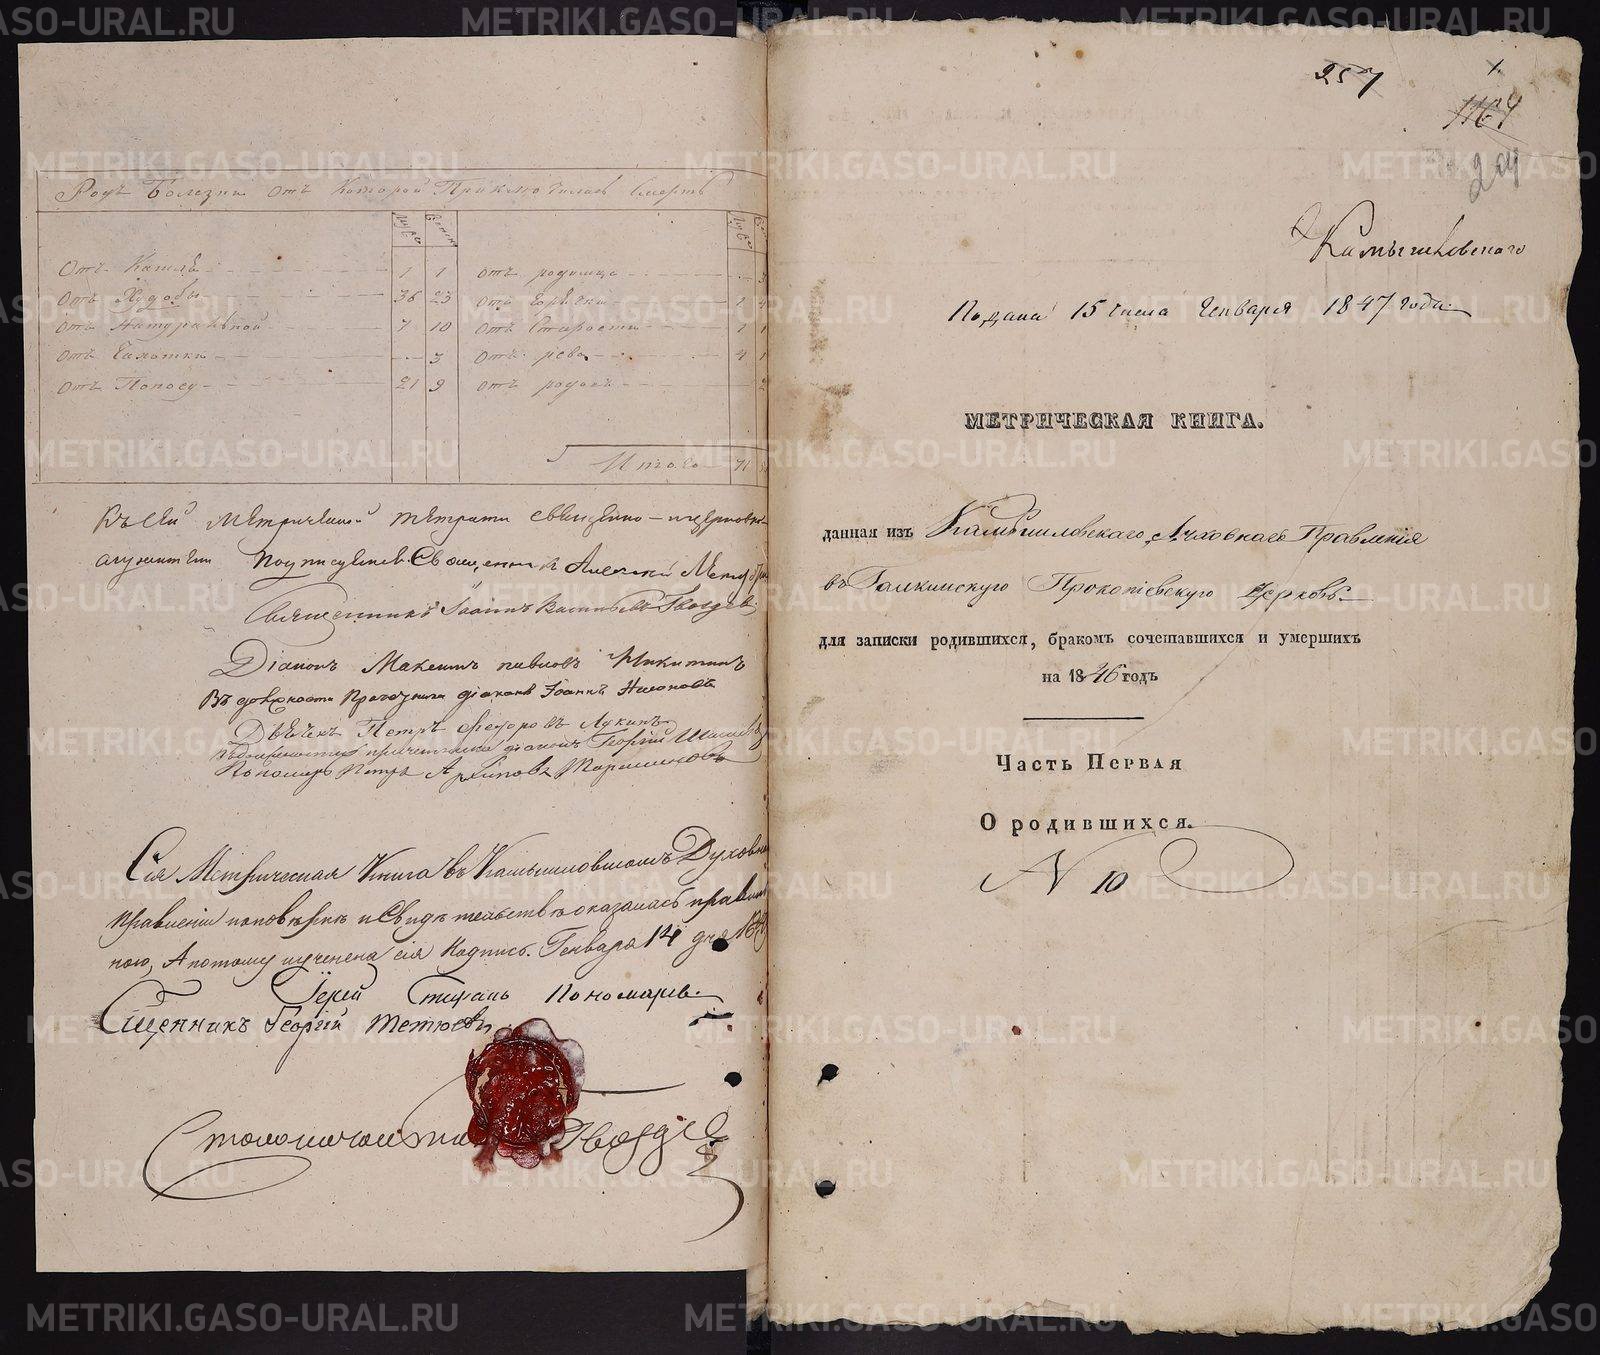 Родъ Болезни отъ Которой Приключилась Смерть
Муж Женск Муж
Отъ Кашля 1 1 отъ родимца
Отъ Худобы 36 23 отъ Горячки 1 4
Отъ Натуральной 7 10 отъ Старости 1 1
Отъ Чахотки 3 отъ рева 4 1
Отъ Поносу 21 9 отъ родовъ 2
Итого 71
Къ сей Метрической тетрати священно-церковно-
служители подписуемся Священникъ Алексей
Священникъ Іоаннъ Гвоздевъ
Діаконъ Максимъ Павловъ Никитинъ
Въ должности Причетника діаконъ Іоаннъ
Дьячекъ Петръ Федоровъ Лукинъ
въ должности причетника діаконъ Георгій
Пономарь Петръ Архиповъ
Сія Метрическая Книга въ Камышловскомъ Духовно
правленіи по повѣркѣ и Свидѣтельствѣ оказалась правиль
ною, А потому и учинена сія Надпись. Генваря 14 дня
Іерей Стефанъ Пономаревъ.
Сщенникъ Георгій Тетюевъ
Столоначальник Гвоздев
257
1.
1164
Камышловскаго
Подана 15 числа Генваря 1847 года.
МЕТРИЧЕСКАЯ КНИГА.
данная изъ Камышловскаго Духовнаго Правленія
въ Галкинскую Прокопіевскую церковь
для записки родившихся, бракомъ сочетавшихся и умершихъ
на 1846 годъ
Часть Первая
О родившихся.
N 10
METRIKI.GASO-URAL.RU